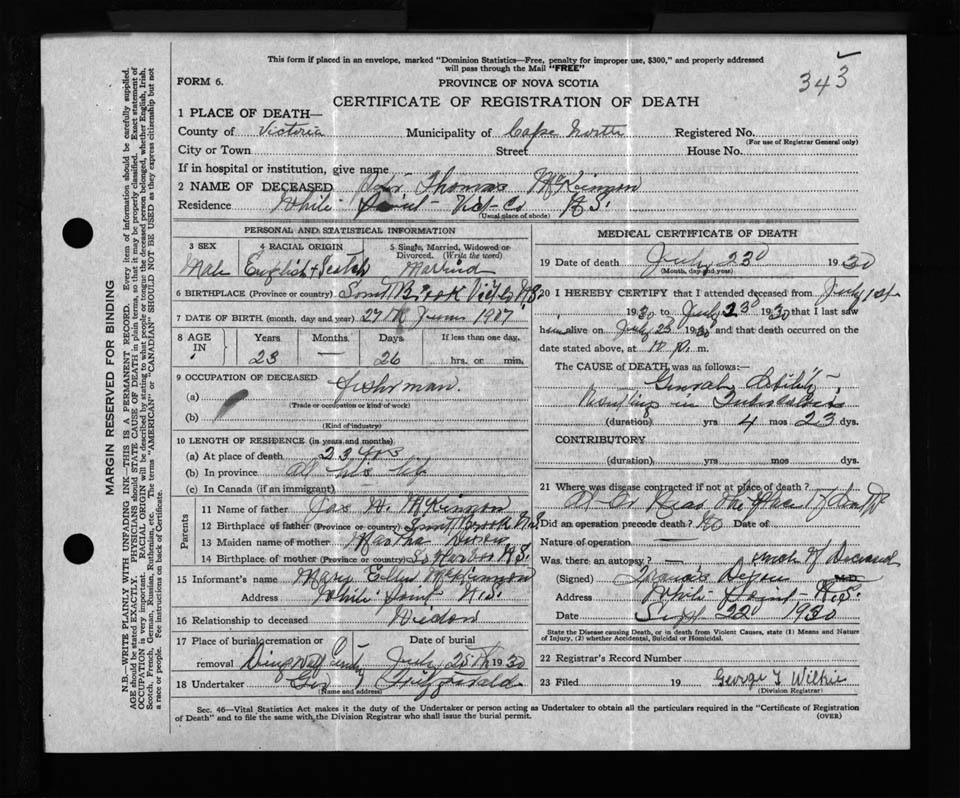 This form if placed in an envelope, marked "Dominion Statistics—Free, penalty for improper use, $300," and properly addressed
will pass through the Mail "FREE"
343
FORM 6.
PROVINCE OF NOVA SCOTIA
CERTIFICATE OF REGISTRATION OF DEATH
1 PLACE OF DEATH—
County of Victoria Municipality of Cape North Registered No.
(For use of Registrar General only)
City or Town Street House No.
If in hospital or institution, give name
2 NAME OF DECEASED Thomas McKinnon
Residence White Point Vict Co N.S.
(Usual place of abode)
PERSONAL AND STATISTICAL INFORMATION
3 SEX 4 RACIAL ORIGIN 5 Single, Married, Widowed or Divorced. (Write the word)
Male English + Scotch Married
6 BIRTHPLACE (Province or country) Brook Vict Co N.S.
7 DATE OF BIRTH. (month, day and year) 27 June 1907
8 AGE IN Years Months Days If less than one day,
23 — 26 hrs. or min.
9 OCCUPATION OF DECEASED
(a) Fisherman.
(Trade or occupation or kind of work)
(b)
(Kind of industry)
10 LENGTH OF RESIDENCE (in years and months)
(a) At place of death 23 yrs
(b) In province All his life
(c) In Canada (if an immigrant)
Parents
11 Name of father Jas McKinnon
12 Birthplace of father (Province or country) Brook N.S.
13 Maiden name of mother Martha Dixon
14 Birthplace of mother (Province or country) So Harbor N.S.
15 Informant's name Mary Ellen McKinnon
Address White Point N.S.
16 Relationship to deceased Widow
17 Place of burial, cremation or removal Dingwall Date of burial July 25th 1930
18 Undertaker Geo Fitzgerald
(Name and address)
MEDICAL CERTIFICATE OF DEATH
19 Date of death July 23d 1930
(Month, day and year)
20 I HEREBY CERTIFY that I attended deceased from July 1st
1930 to July 23d 1930 that I last saw
him alive on July 23 1930 and that death occurred on
date stated above, at p. m.
The CAUSE of DEATH was as follows:—
General Debility
Resulting in
(duration) yrs 4 mos 23 dys.
CONTRIBUTORY
(duration) yrs. mos. dys.
21 Where was disease contracted if not at place of death?
Did an operation precede death? No Date of
Nature of operation —
Was there an autopsy? — of Deceased
(Signed) M.D.
Address White Point N.S.
Date Sept 22d 1930
State the Disease causing Death, or in death from Violent Causes, state (1) Means and
Nature of Injury, (2) whether Accidental, Suicidal or Homicidal.
22 Registrar's Record Number
23 Filed 19 George T Wilkie
(Division Registrar)
Sec. 46—Vital Statistics Act makes it the duty of the Undertaker or person acting as Undertaker to obtain all the particulars required in the "Certificate of Registration
of Death" and to file the same with the Division Registrar who shall issue the burial permit.
(OVER)
MARGIN RESERVED FOR BINDING
N.B.—WRITE PLAINLY WITH UNFADING INK—THIS IS A PERMANENT RECORD. Every item of information should be carefully supplied.
AGE should be stated EXACTLY. PHYSICIANS should STATE CAUSE OF DEATH in plain terms, so that it may be properly classified. Exact statement of
OCCUPATION is very important. RACIAL ORIGIN will be described by stating to what people or tongue the deceased person belonged, whether English, Irish,
Scotch, French, German, Russian, Ruthenian, etc. The terms "AMERICAN" or "CANADIAN" SHOULD NOT BE USED as they express citizenship but not
a race or people. Fee instructions on back of Certificate.